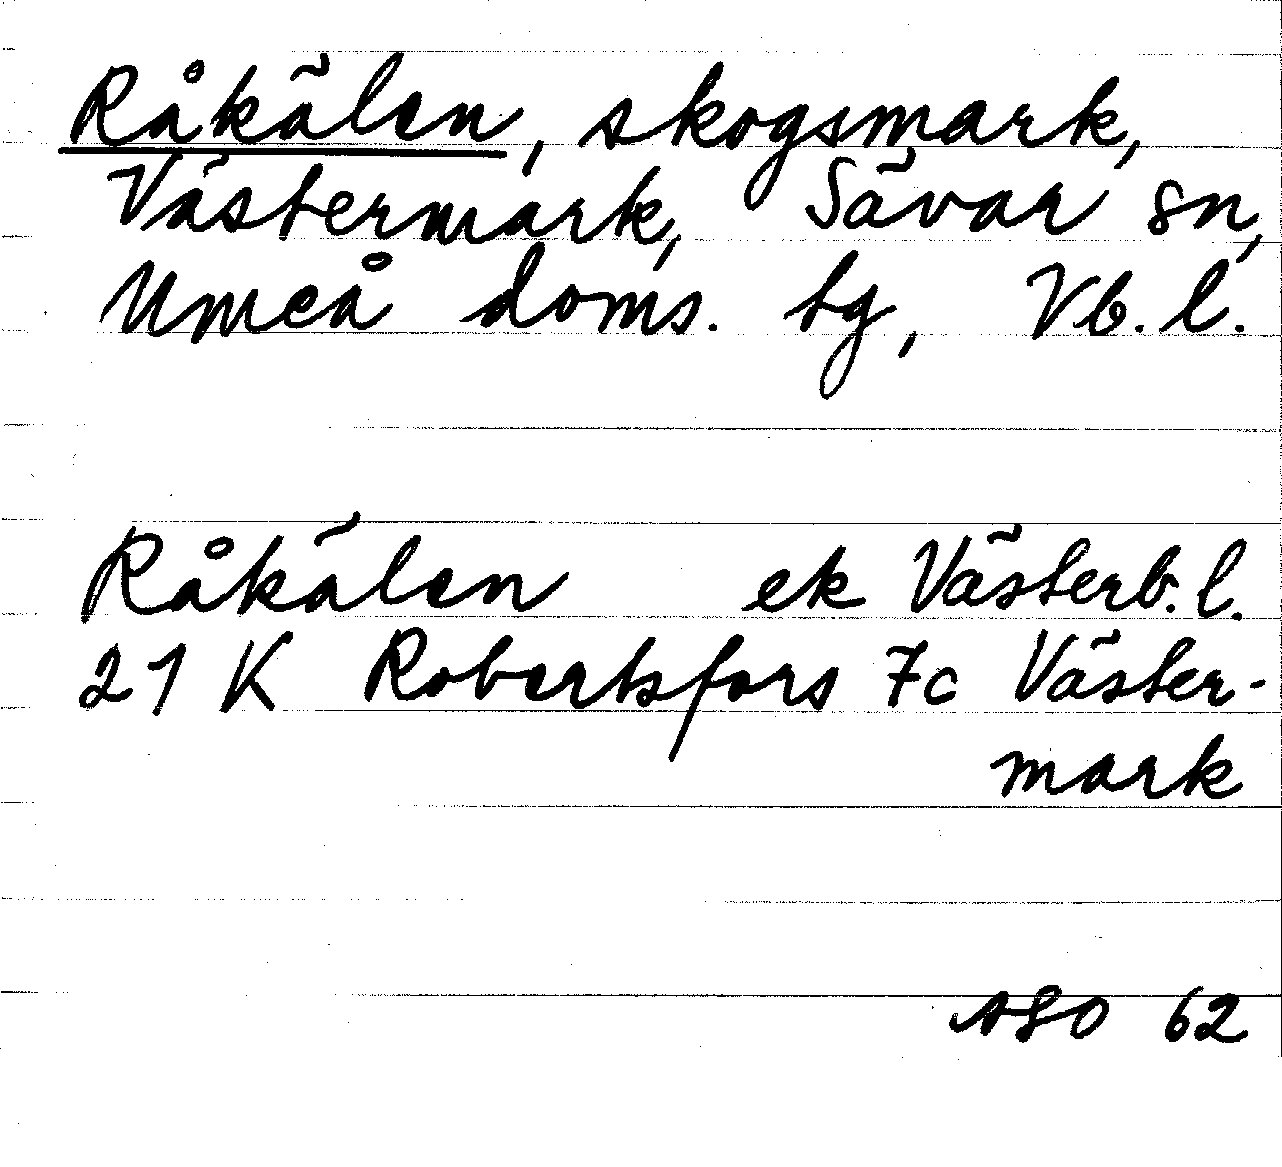 Råkälen, skogsmark,
Västermark, Sävar sn,
Umeå doms. tg, Vb. l.
Råkälen ek Västerb. l.
21 K Robertsfors 7c Väster-
mark
ASO 62